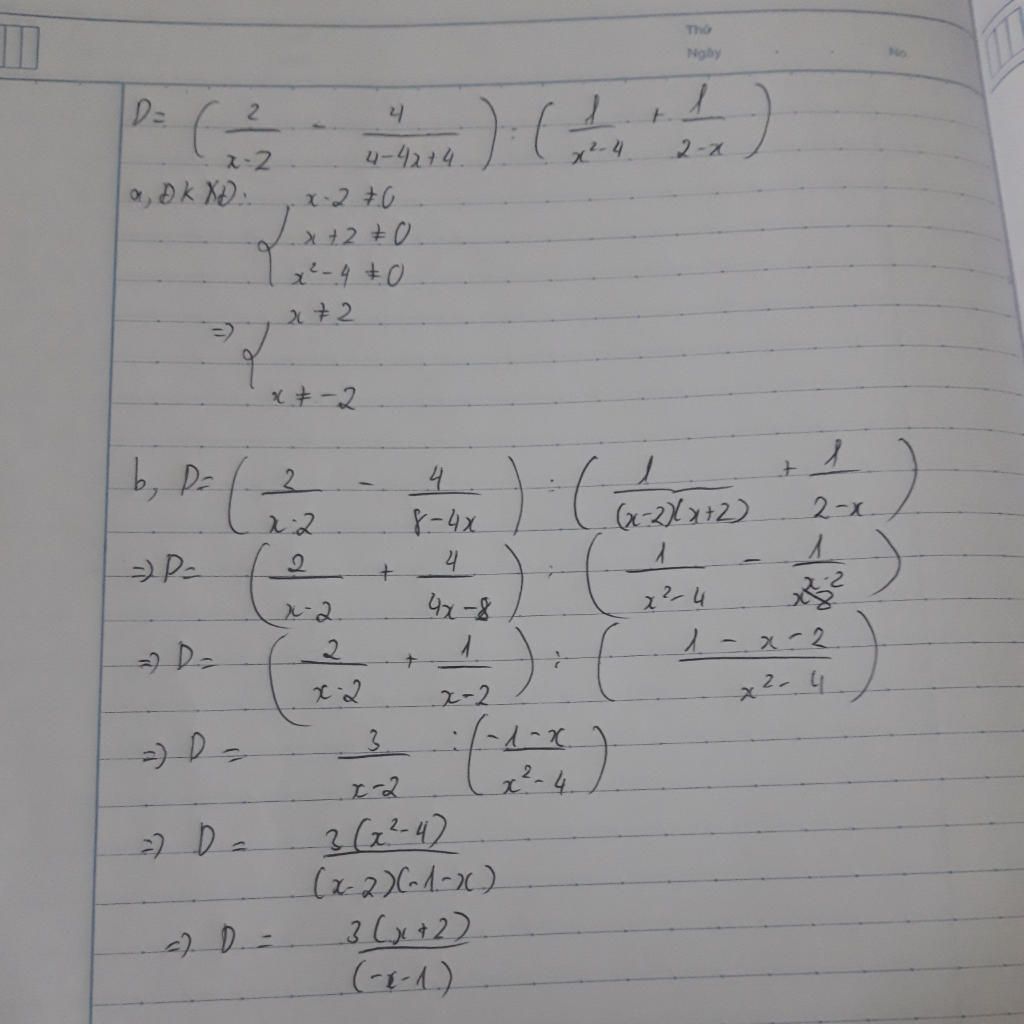 Thứ
Ngày . . No
D= (2/(x-2) - 4/(4-4x+4)) : (1/(x²-4) + 1/(2-x))
a, ĐKXĐ: x-2 ≠0
x+2 ≠0
x²-4 ≠0
=> x ≠ 2
x ≠ -2
b, D= (2/(x-2) - 4/(8-4x)) : (1/((x-2)(x+2)) + 1/(2-x))
=> D= (2/(x-2) + 4/(4x-8)) : (1/(x²-4) - 1/(x-2))
=> D= (2/(x-2) + 1/(x-2)) : ((1-x-2)/(x²-4))
=> D = 3/(x-2) : ((-1-x)/(x²-4))
=> D = 3(x²-4)/((x-2)(-1-x))
=> D = 3(x+2)/(-x-1)